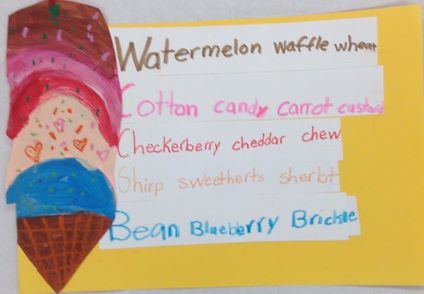 Watermelon waffle wheat
Cotton candy carrot custard
Checkerberry cheddar chew
Shirp sweetherts sherbt
Bean Blueberry Brickle